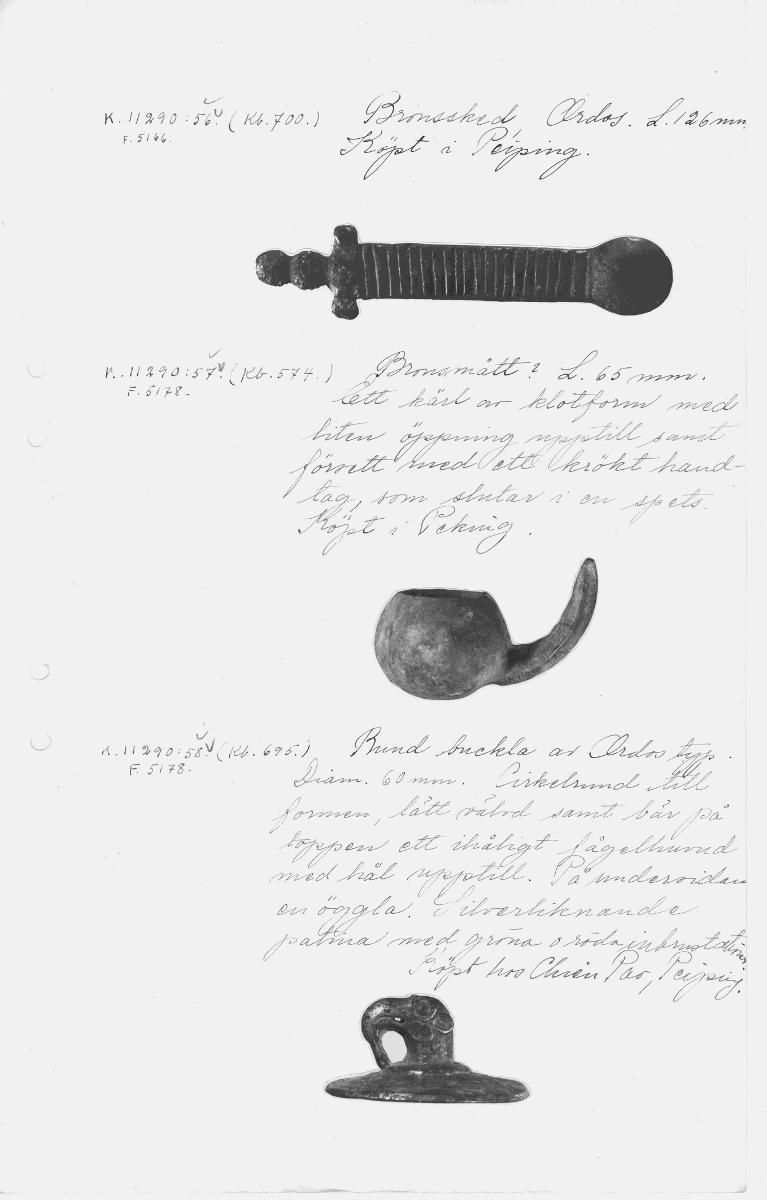 K.11290:56. (Kb.700.) Bronssked Ordos. L.126mm.
F.5166. Köpt i Peiping.
K.11290:57. (Kb.574.) Bronsmått? L. 65 mm.
F.5178. Ett kärl av klotform med
liten öppning upptill samt
försett med ett krökt hand-
tag, som slutar i en spets.
Köpt i Peking.
K.11290:58. (Kb.695.) Rund buckla av Ordos typ.
F.5178. Diam. 60 mm. Cirkelrund till
formen, lätt välvd samt bär på
toppen ett ihåligt fågelhuvud
med hål upptill. På undersidan
en öggla. Silverliknande
patina med gröna o röda inkrustationer.
Köpt hos Chien Pao, Peiping.